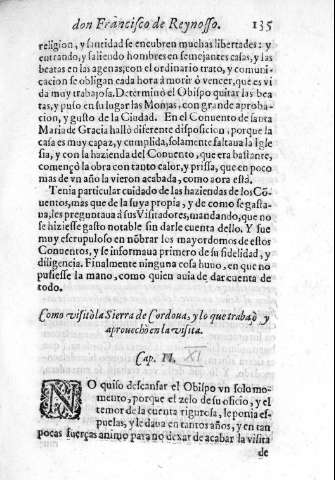 don Francisco de Reynosso. 135
religion, y santidad se encubren muchas libertades: y
entrando, y saliendo hombres en semejantes casas, y las
beatas en las agenas, con el ordinario trato, y comuni-
cacion se obligan cada hora à morir ò vencer, que es vi
da muy trabajosa. Determinò el Obispo quitar las bea
tas, y puso en su lugar las Monjas, con grande aproba-
cion, y gusto de la Ciudad. En el Conuento de santa
Maria de Gracia hallò diferente disposicion, porque la
casa es muy capaz, y cumplida, solamente faltaua la Igle
sia, y con la hazienda del Conuento, que era bastante,
començò la obra con tanto calor, y prissa, que en poco
mas de vn año la vieron acabada, como aora està.
Tenia particular cuidado de las haziendas de los Cõ-
uentos, mas que de la suya propia, y de como se gasta-
ua, les preguntaua à sus Visitadores, mandando, que no
se hiziesse gasto notable sin darle cuenta dello. Y fue
muy escrupuloso en nõbrar los mayordomos de estos
Conuentos, y se informaua primero de su fidelidad, y
diligencia. Finalmente ninguna cosa huuo, en que no
pusiesse la mano, como quien auia de dar cuenta de
todo.
Como visitò la Sierra de Cordoua, y lo que trabajò y
aprouechò en la visita.
Cap. II. XI
NO quiso descansar el Obispo vn solo mo-
mento, porque el zelo de su oficio, y el
temor de la cuenta rigurosa, le ponia es-
puelas, y le daua en tantos años, y en tan
pocas fuerças animo para no dexar de acabar la visita
de